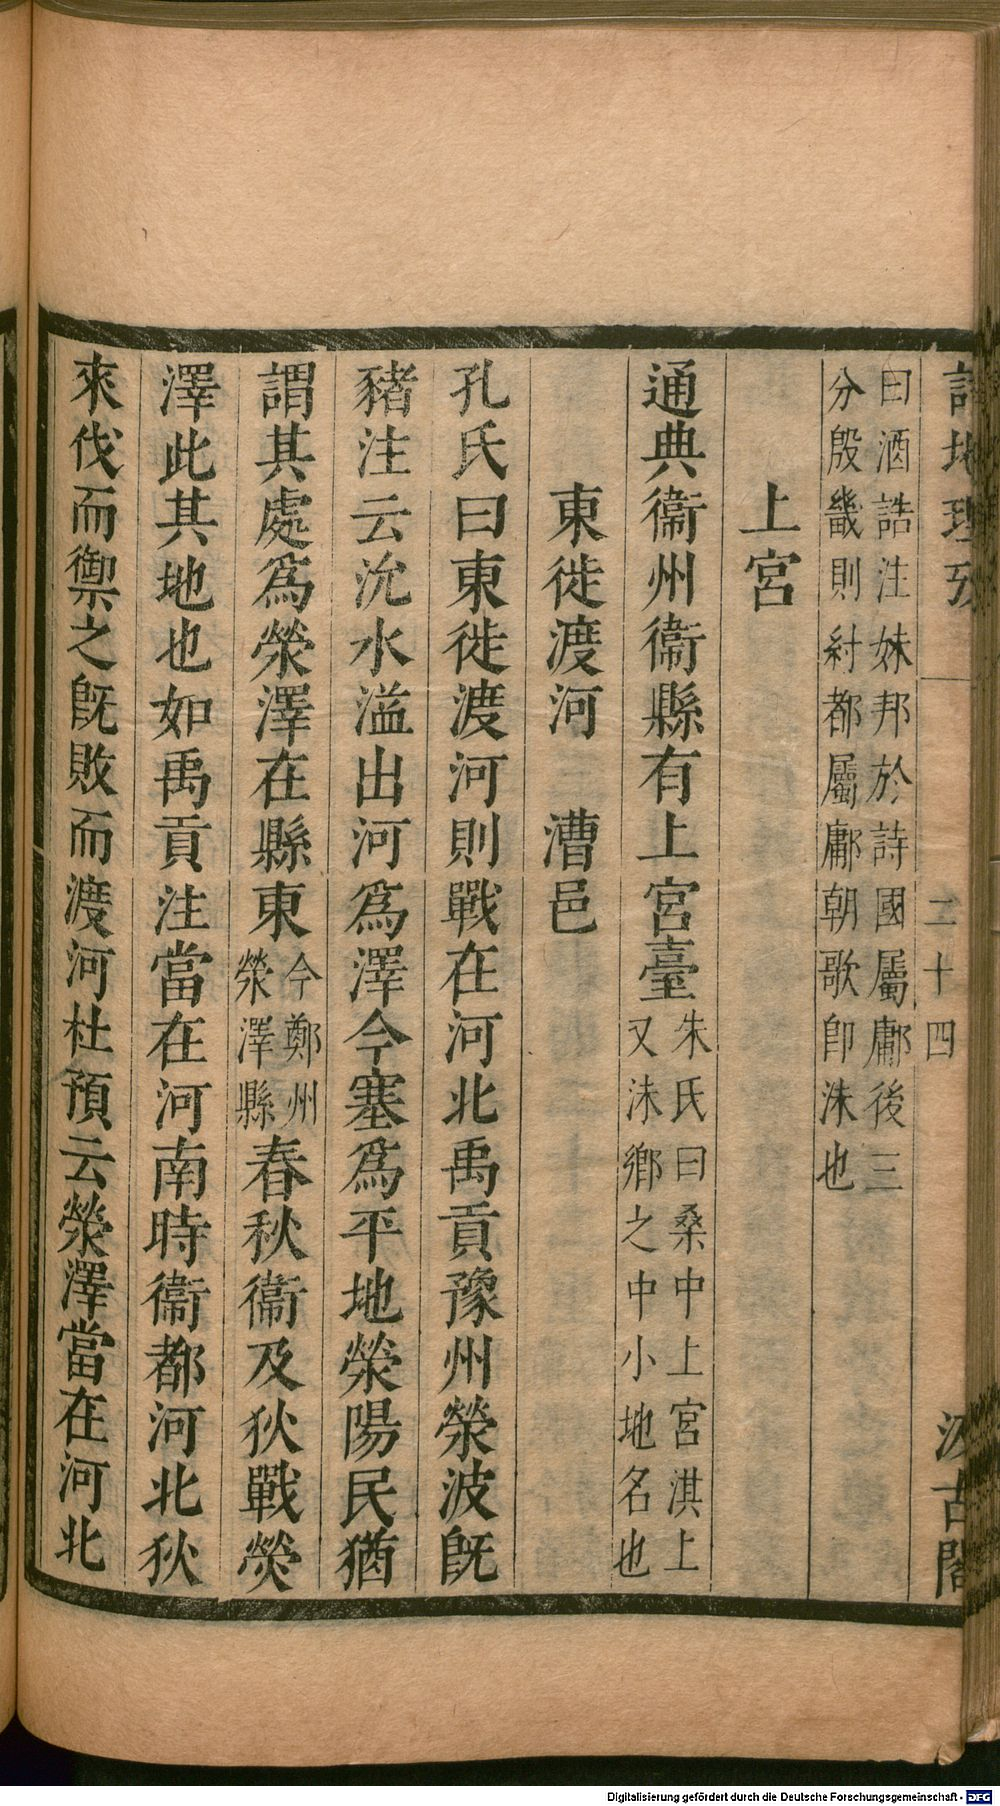 詩地理攷 二十四 汲古閣
曰酒誥注妹邦於詩國屬鄘後三
分殷畿則紂都屬鄘朝歌卽沬也
上宮
通典衞州衞縣有上宮臺
朱氏曰桑中上宮淇上
又沬鄉之中小地名也
東徙渡河 漕邑
孔氏曰東徙渡河則戰在河北禹貢豫州滎波旣
豬注云沇水溢出河爲澤今塞爲平地滎陽民猶
謂其處爲滎澤在縣東
今鄭州
滎澤縣
春秋衞及狄戰熒
澤此其地也如禹貢注當在河南時衞都河北狄
來伐而禦之旣敗而渡河杜預云滎澤當在河北
Digitalisierung gefördert durch die Deutsche Forschungsgemeinschaft - DFG